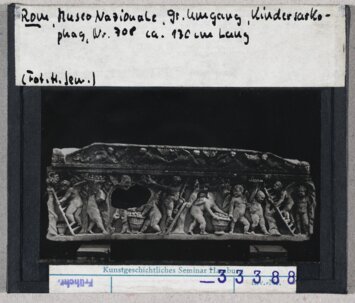 Rom, Museo Nazionale, Gr. Umgang, Kindersarko-
phag, Nr. 708 ca. 130 cm lang
(Fot. H. Sem.)
Kunstgeschichtliches Seminar Hamburg
Frühchr.
33388